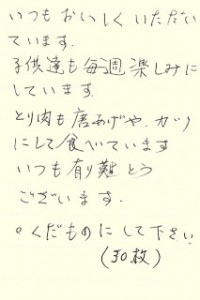 いつもおいしくいただい
ています.
子供達も毎週楽しみに
しています
とり肉も唐あげや.カツ
にして食べています
いつも有り難とう
ございます.
○くだものにして下さい.
(30枚)